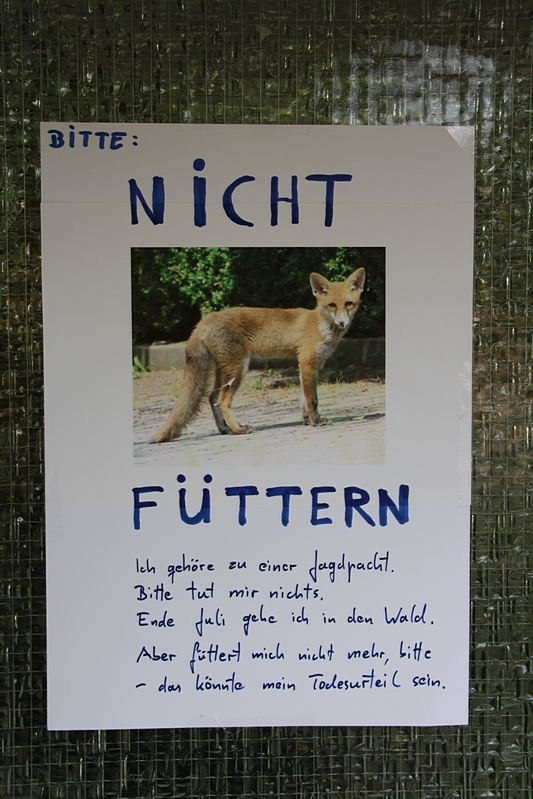 BiTTE:
NiCHT
FÜTTERN
Ich gehöre zu einer Jagdpacht.
Bitte tut mir nichts.
Ende Juli gehe ich in den Wald.
Aber füttert mich nicht mehr, bitte
– das könnte mein Todesurteil sein.